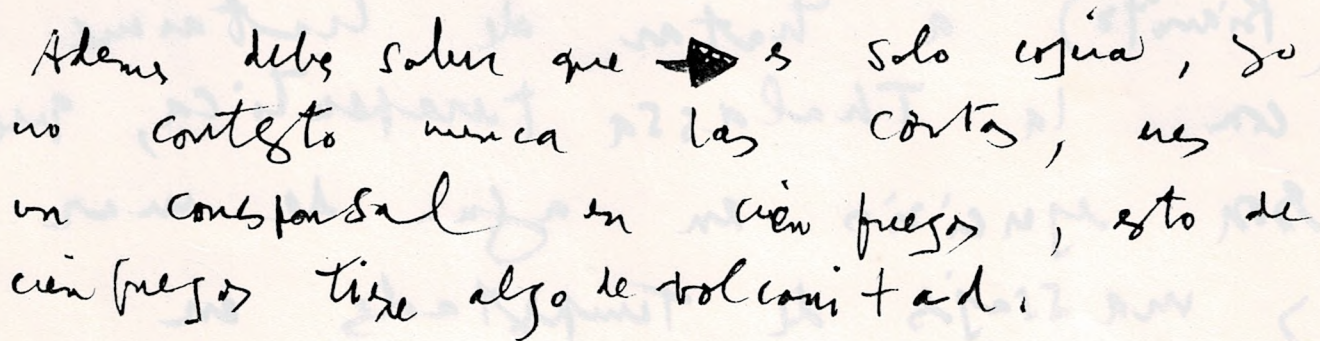 Ademas debes saber que es solo copia, yo
no contesto nunca las cartas, eres
un corresponsal en cien fuegos, esto de
cien fuegos tiene algo de volcanitad.